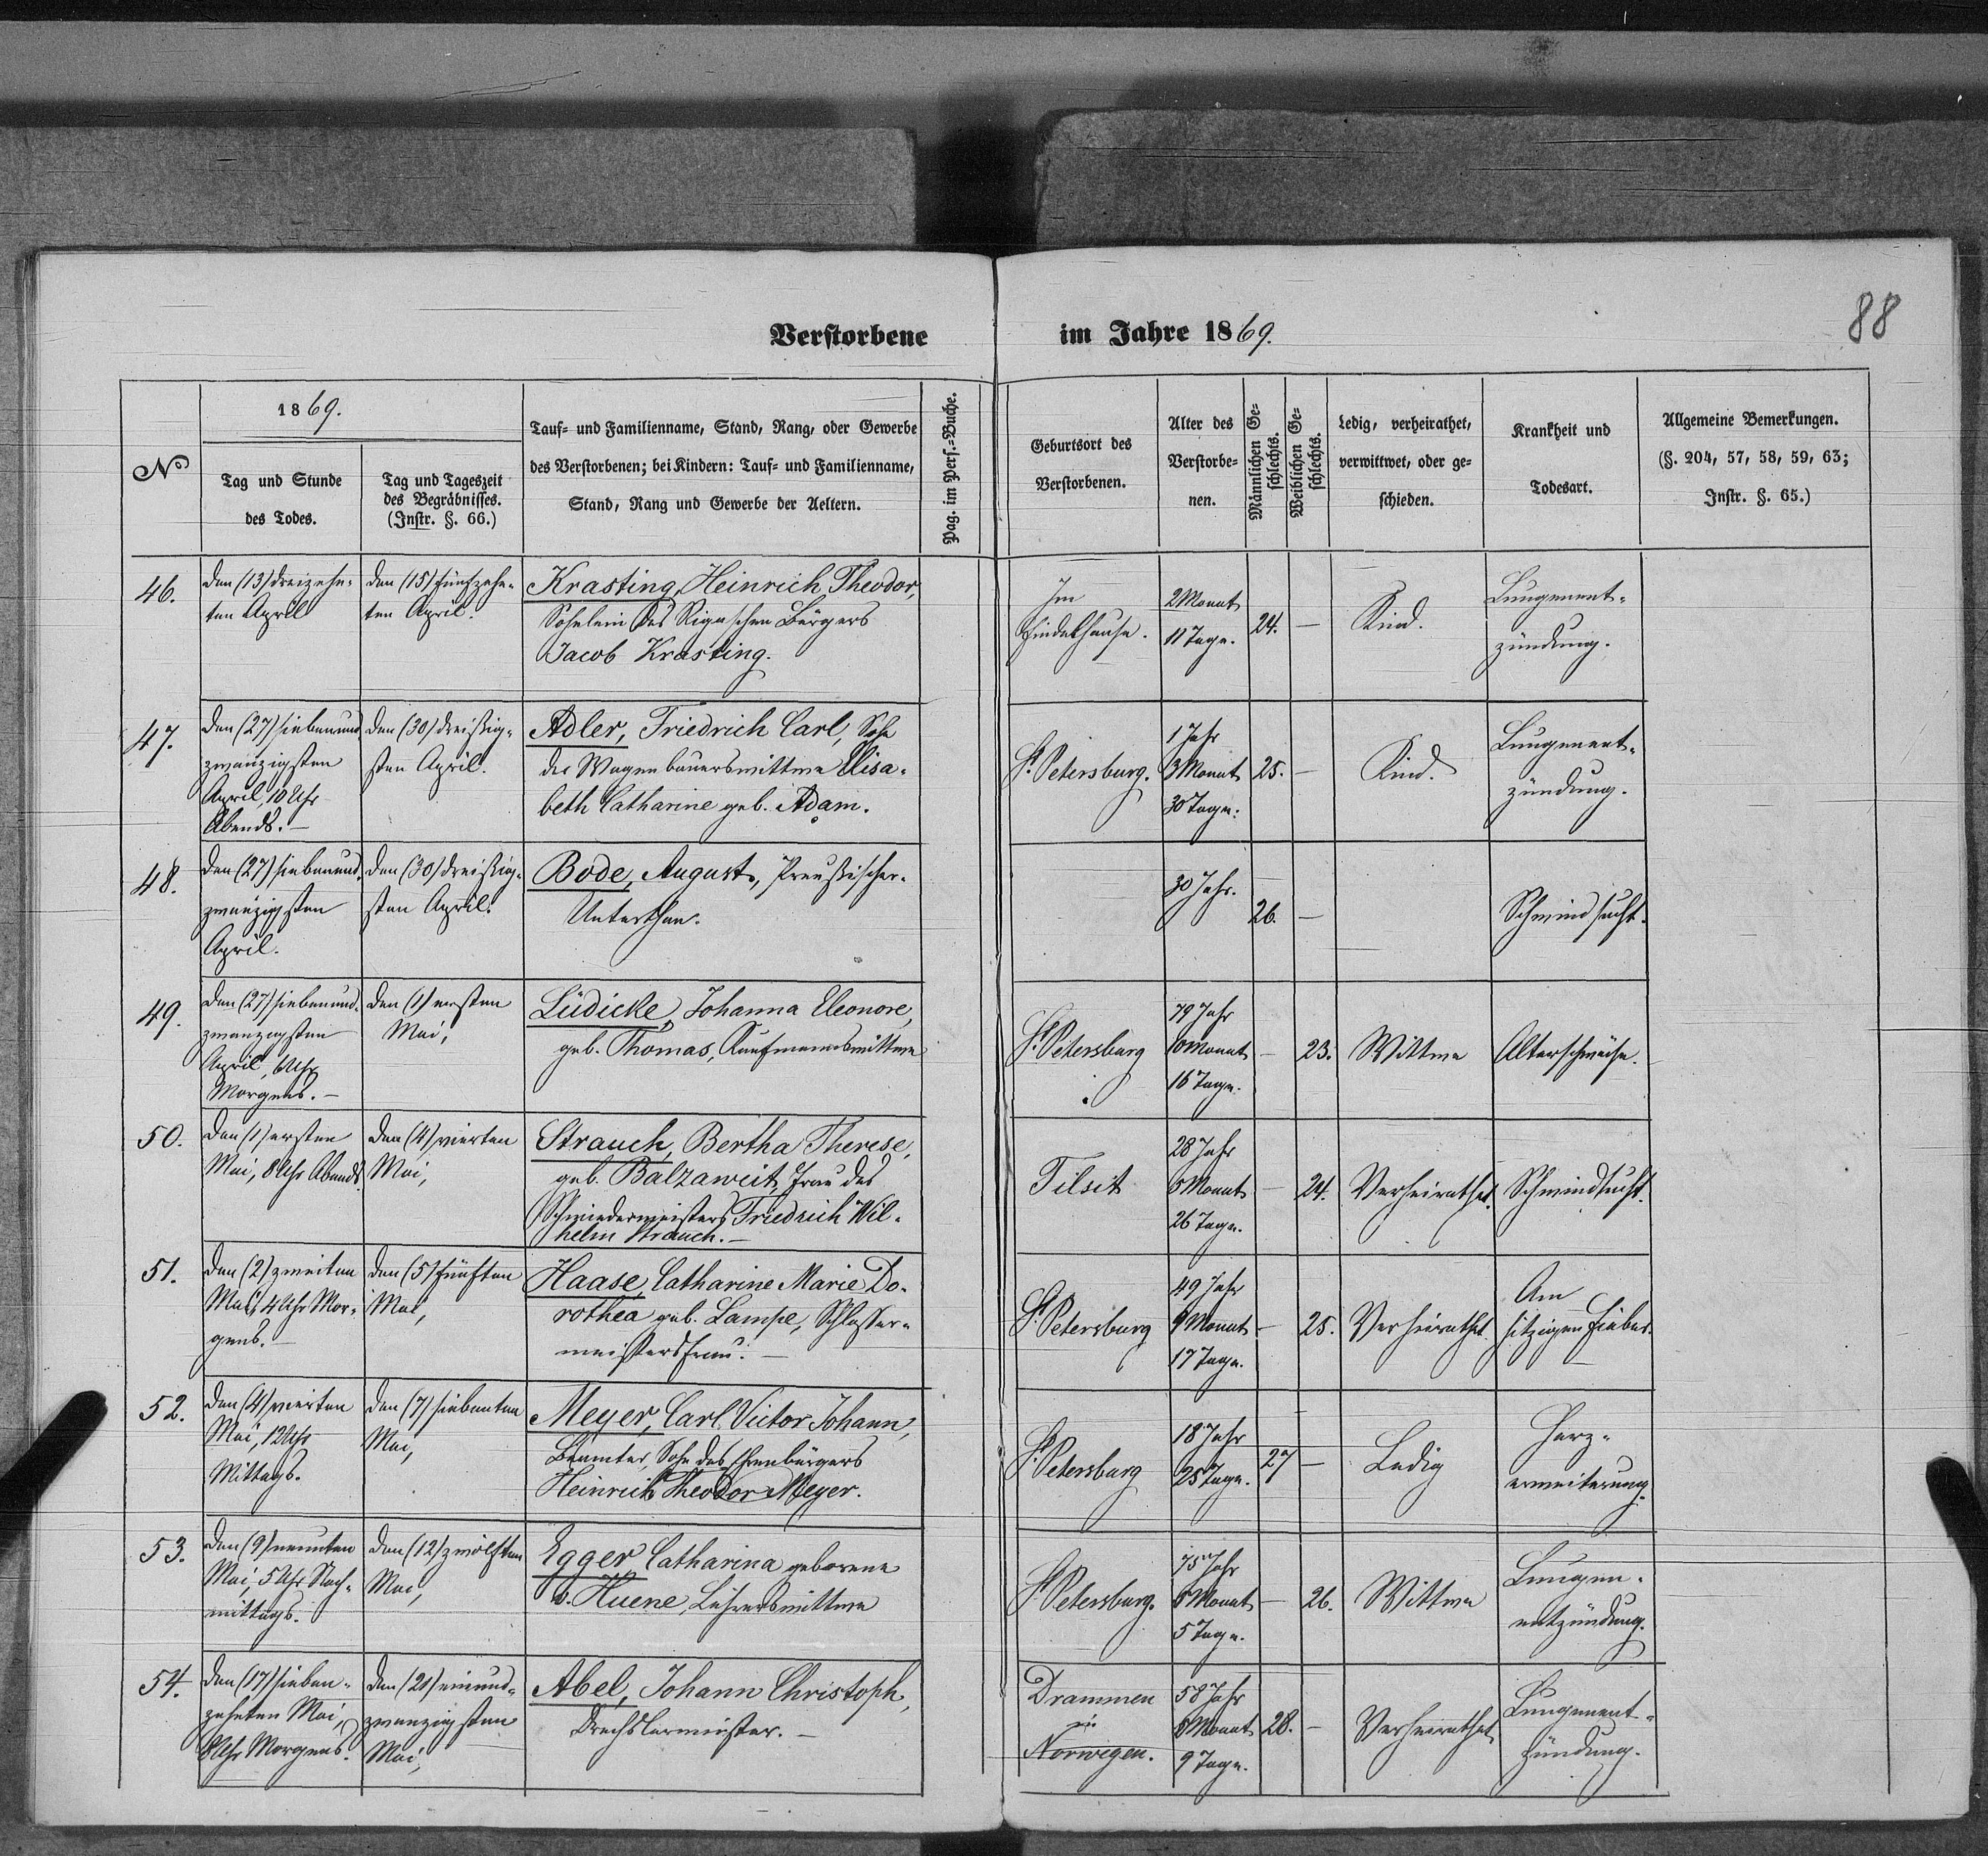 88
Verstorbene im Jahre 1869.
No
1869.
Tag und Stunde
des Todes.
Tag und Tageszeit
des Begräbnisses.
(Instr. §. 66.)
Tauf- und Familienname, Stand, Rang, oder Gewerbe
des Verstorbenen; bei Kindern: Tauf- und Familienname,
Stand, Rang und Gewerbe der Aeltern.
Pag. im Pers.-Buche.
Geburtsort des
Verstorbenen.
Alter des
Verstorbe-
nen.
Männlichen Ge-
schlechts.
Weiblichen Ge-
schlechts.
Ledig, verheirathet,
verwittwet, oder ge-
schieden.
Krankheit und
Todesart.
Allgemeine Bemerkungen.
(§. 204, 57, 58, 59, 63;
Instr. §. 65.)
46.
den (13) dreizehn-
ten April
den (15) fünfzehn-
ten April.
Krasting, Heinrich Theodor,
Söhnlein des Rigaschen Bürgers
Jacob Krasting.
Im
Findelhause.
2 Monat
11 Tage.
24.
—
Kind.
Lungenent-
zündung.
47.
den (27) siebenund-
zwanzigsten
April, 10 Uhr
Abends. —
den (30) dreißig-
sten April.
Adler, Friedrich Carl, Sohn
der Wagenbauerswittwe Elisa-
beth Catharine geb. Adam.
St. Petersburg.
1 Jahr
3 Monat
30 Tage.
25.
—
Kind.
Lungenent-
zündung.
48.
den (27) siebenund-
zwanzigsten
April.
den (30) dreißig-
sten April.
Bode, August, Preußischer-
Unterthan.
30 Jahr.
26.
—
Schwindsucht.
49.
den (27) siebenund-
zwanzigsten
April, 6 Uhr
Morgens. —
den (1) ersten
Mai,
Lüdicke, Johanna Eleonore,
geb. Thomas, Kaufmannswittwe
St. Petersburg
79 Jahr
10 Monat
16 Tage.
—
23.
Wittwe
Altersschwäche.
50.
den (1) ersten
Mai, 8 Uhr Abends.
den (4) vierten
Mai,
Strauch, Bertha Therese,
geb. Balzaweit, Frau des
Schmiedemeisters Friedrich Wil-
helm Strauch. —
Tilsit
28 Jahr
6 Monat
26 Tage.
—
24.
Verheirathet.
Schwindsucht.
51.
den (2) zweiten
Mai, 4 Uhr Mor-
gens. —
den (5) fünften
Mai,
Haase, Catharine Marie Do-
rothea geb. Lampe, Schlosser-
meistersfrau. —
St. Petersburg
49 Jahr
9 Monat
17 Tage.
—
25.
Verheirathet.
Am
hitzigen Fieber.
52.
den (4) vierten
Mai, 12 Uhr
Mittags.
den (7) siebenten
Mai,
Meyer, Carl Victor Johann,
Beamter, Sohn des Ehrenbürgers
Heinrich Theodor Meyer.
St. Petersburg
18 Jahr
25 Tage.
27
—
Ledig
Herz-
erweiterung.
53.
den (9) neunten
Mai, 5 Uhr Nach-
mittags.
den (12) zwölften
Mai,
Egger Catharina geborene
v. Huene, Lehrerswittwe
St. Petersburg.
75 Jahr
6 Monat
5 Tage.
—
26.
Wittwe
Lungen-
entzündung.
54.
den (17) sieben-
zehnten Mai,
8 Uhr Morgens.
den (21) einund-
zwanzigsten
Mai,
Abel, Johann Christoph,
Drechslermeister. —
Drammen
in
Norwegen.
58 Jahr
6 Monat
9 Tage.
28.
—
Verheirathet
Lungenent-
zündung.